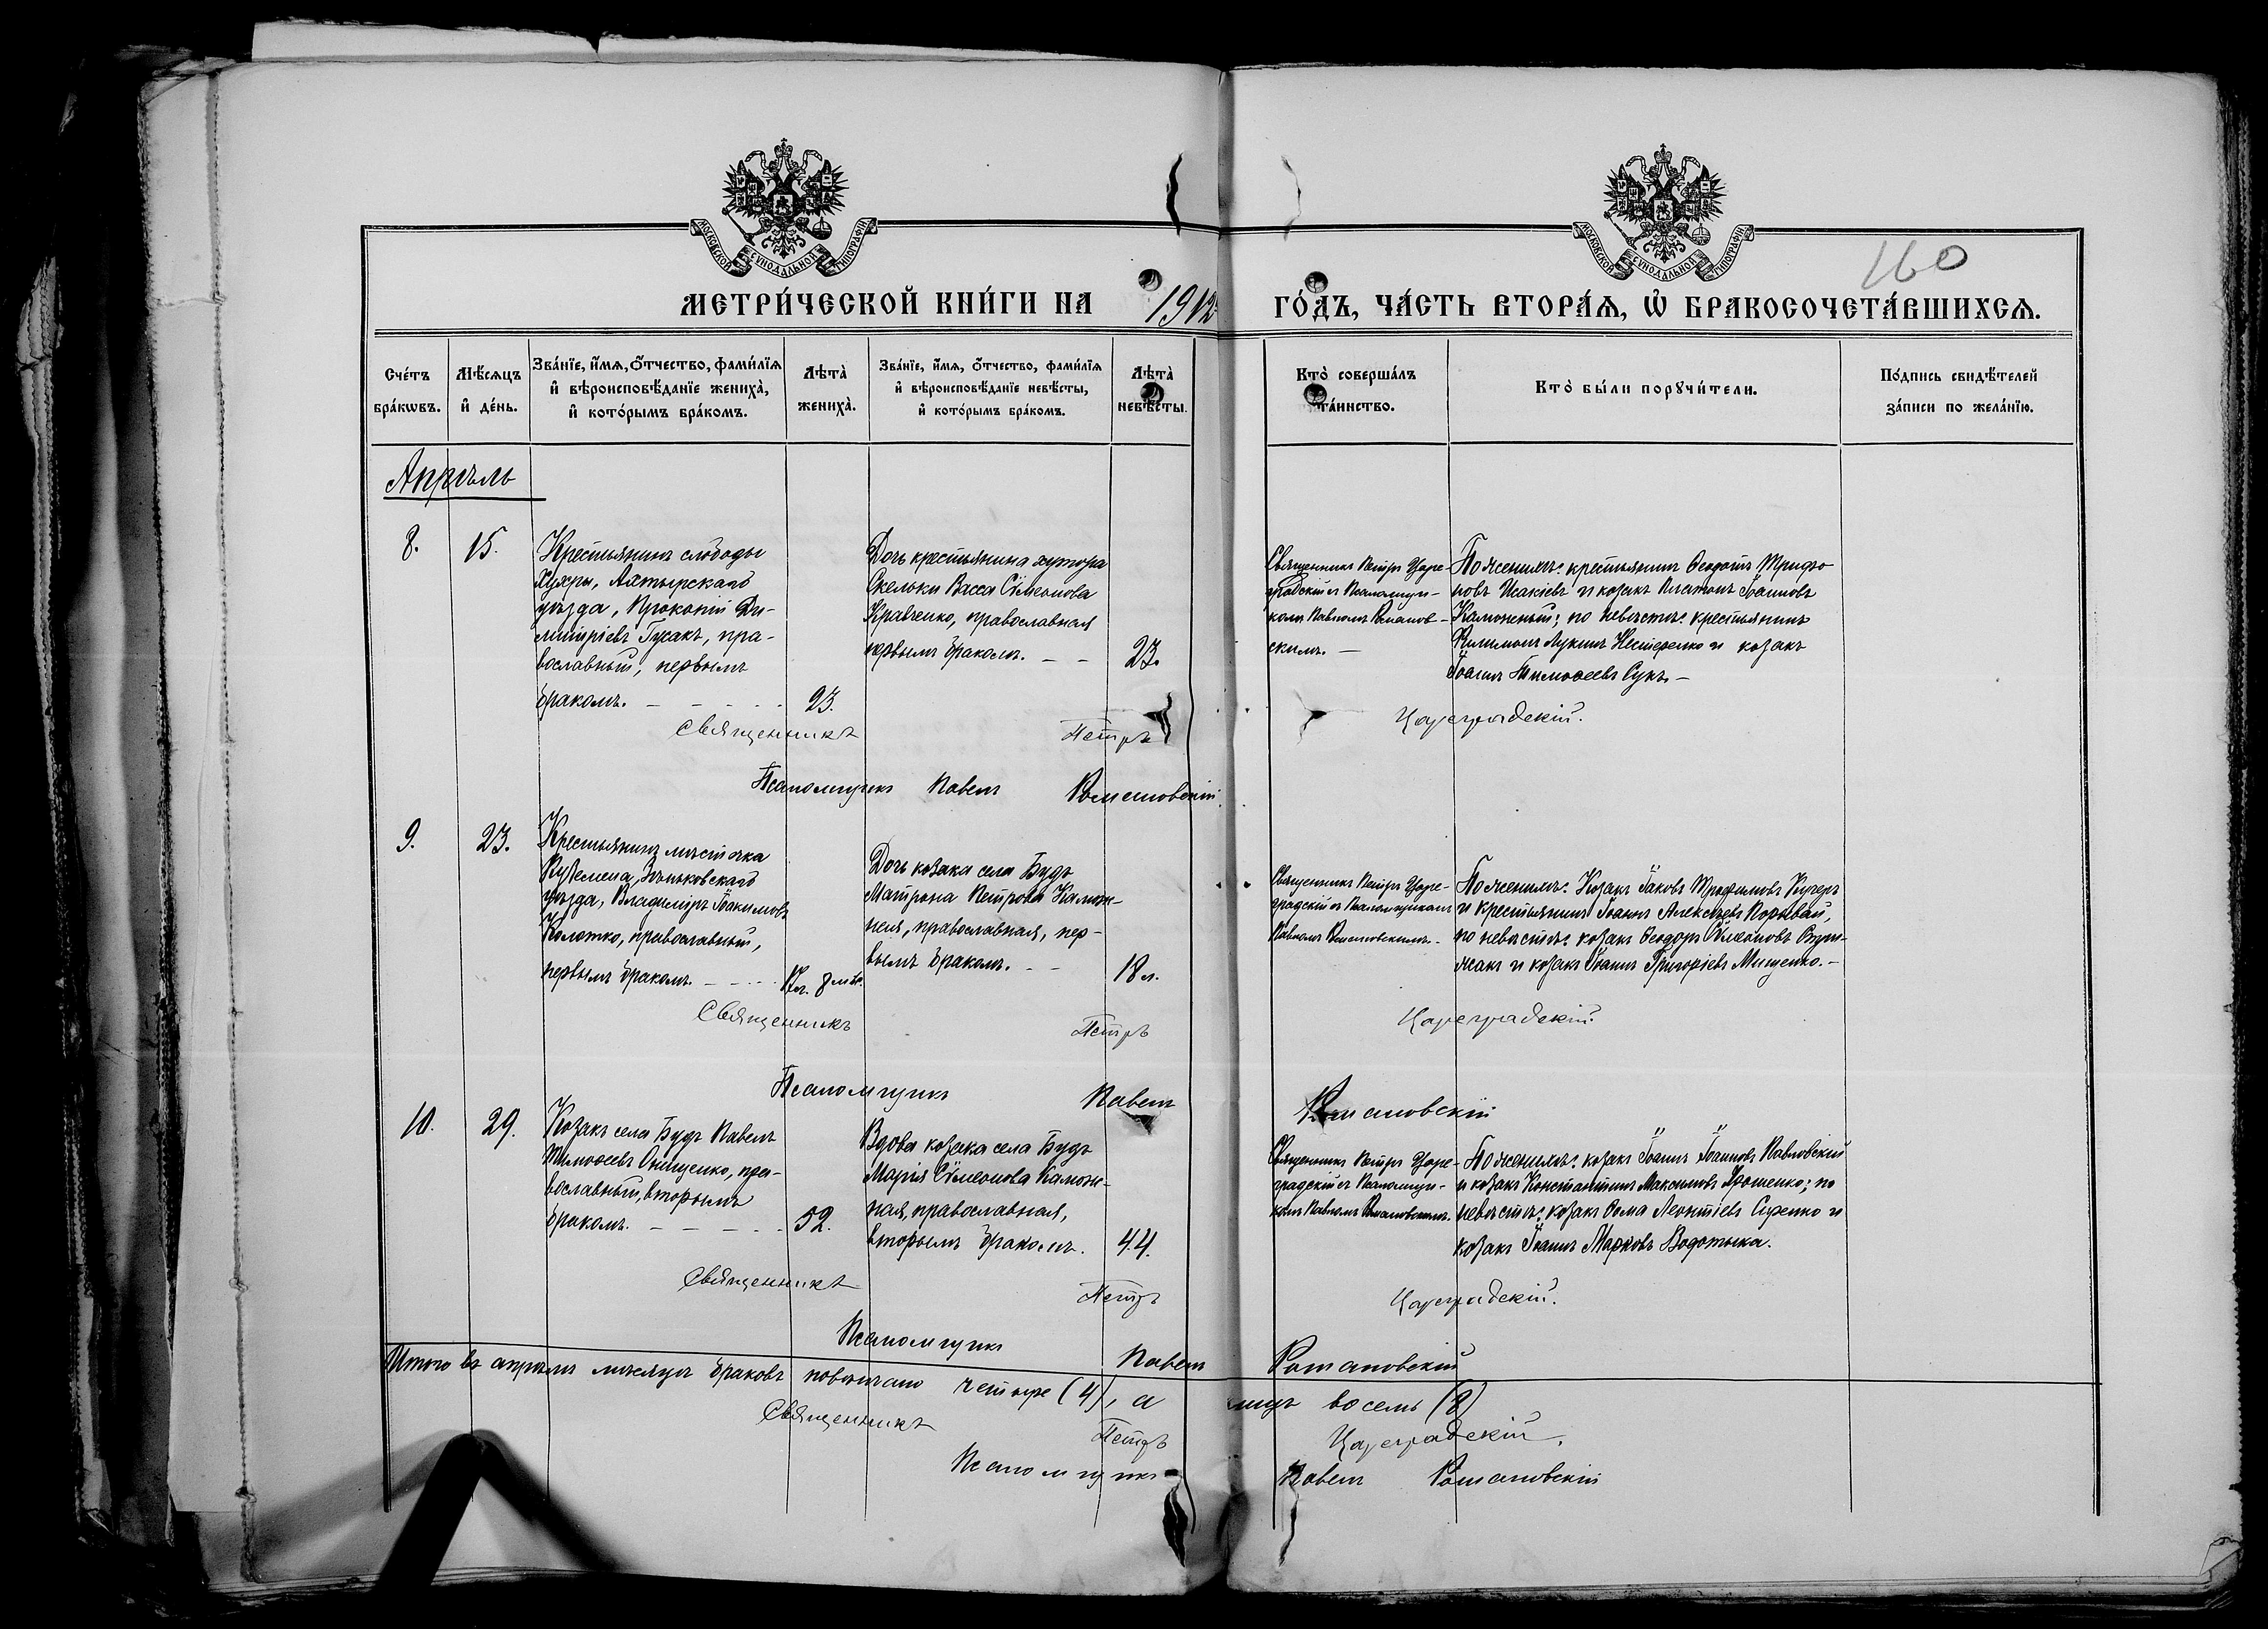 МОСКОВСКОЙ СУНОДАЛЬНОЙ ТИПОГРАФІИ
МОСКОВСКОЙ СУНОДАЛЬНОЙ ТИПОГРАФІИ
160
МЕТРИ́ЧЕСКОЙ КНИ́ГИ НА 1912 ГО́ДЪ, ЧА́СТЬ ВТОРА́Я, Ѽ БРАКОСОЧЕТА́ВШИХСЯ.
Сче́тъ бра́кωвъ.
Мѣ́сяцъ и҆ де́нь.
Зва́нїе, и҆́мя, ѻ҆́тчество, фами́лїя
и҆ вѣроисповѣ́данїе жениха̀,
и҆ кото́рымъ бра́комъ.
Лѣта̀ жениха̀.
Зва́нїе, и҆́мя, ѻ҆́тчество, фами́лїя
и҆ вѣроисповѣ́данїе невѣ́сты,
и҆ кото́рымъ бра́комъ.
Лѣта̀ невѣ́сты.
Кто̀ соверша́лъ та́инство.
Кто̀ бы́ли порꙋчи́тели.
По́дпись свидѣ́телей
за́писи по жела́нїю.
Апрѣль
8.
15.
Крестьянинъ слободы
Хухры, Ахтырскаго
уѣзда, Прокопій Ди-
митріевъ Гусакъ, пра-
вославный, первымъ
бракомъ. – – – – –
23.
Дочь крестьянина хутора
Скельки Васса Сѵмеонова
Кравченко, православная
первымъ бракомъ. – –
23.
Священникъ Петръ Царе-
градскій съ Псаломщи-
комъ Павломъ Романов-
скимъ. –
По женихѣ: крестьянинъ Ѳеодотъ Трифо
новъ Исакіевъ и козакъ Платонъ Іоанновъ
Каможный; по невѣстѣ: крестьянинъ
Филимонъ Лукинъ Нестеренко и козакъ
Іоаннъ Тимоѳеевъ Сукъ. –
Священникъ Петръ Цареградскій.
Псаломщикъ Павелъ Романовскій.
9.
23.
Крестьянинъ мѣстечка
Куземена, Зѣньковскаго
уѣзда, Владимиръ Іоакимовъ
Колотко, православный,
первымъ бракомъ. – – – –
17 л. 8 мѣс.
Дочь козака села Будъ
Матрона Петрова Камож-
ная, православная, пер-
вымъ бракомъ. – –
18 л.
Священникъ Петръ Царе-
градскій съ Псаломщикомъ
Павломъ Романовскимъ. –
По женихѣ: Козакъ Іаковъ Трофимовъ Кучеръ
и крестьянинъ Іоаннъ Алексѣевъ Порывай,
по невѣстѣ: козакъ Ѳеодоръ Сѵмеоновъ
и козакъ Іоаннъ Григоріевъ Мищенко. –
Священникъ Петръ Цареградскій.
Псаломщикъ Павелъ Романовскій
10.
29.
Козакъ села Будъ Павелъ
Тимоѳеевъ Онищенко, пра-
вославный, вторымъ
бракомъ. – – – – –
52.
Вдова козака села Будъ
Марія Сѵмеонова Камож-
ная, православная,
вторымъ бракомъ.
44.
Священникъ Петръ Царе-
градскій съ Псаломщи-
комъ Павломъ Романовскимъ.
По женихѣ: козакъ Іоаннъ Іоанновъ Павловскій
и козакъ Константинъ Максимовъ Ярошенко; по
невѣстѣ: козакъ Ѳома Леонтіевъ Сиренко и
козакъ Іоаннъ Марковъ Водотыка.
Священникъ Петръ Цареградскій.
Псаломщикъ Павелъ Романовскій
Итого въ апрѣлѣ мѣсяцѣ браковъ повѣнчано четыре (4), а лицъ восемь (8)
Священникъ Петръ Цареградскій.
Псаломщикъ Павелъ Романовскій